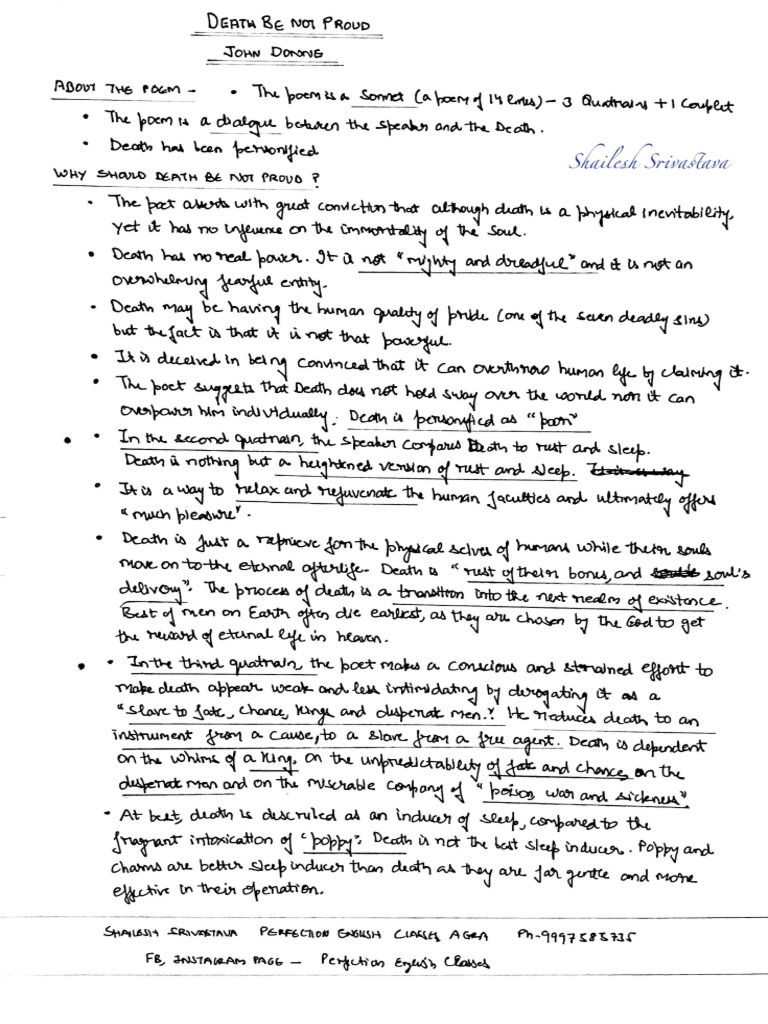 DEATH BE NOT PROUD
JOHN DONNE
ABOUT THE POEM - • The poem is a Sonnet (a poem of 14 lines) - 3 Quatrains + 1 Couplet
• The poem is a dialogue between the speaker and the Death.
• Death has been personified
Shailesh Srivastava
WHY SHOULD DEATH BE NOT PROUD ?
• The poet asserts with great conviction that although death is a physical inevitability,
yet it has no influence on the immortality of the soul.
• Death has no real power. It is not "mighty and dreadful" and it is not an
overwhelming fearful entity.
• Death may be having the human quality of pride (one of the seven deadly sins)
but the fact is that it is not that powerful.
• It is deceived in being convinced that it can overthrow human life by claiming it.
• The poet suggests that Death does not hold sway over the world nor it can
overpower him individually. Death is personified as "poor"
• • In the second quatrain, the speaker compares Death to rest and sleep.
Death is nothing but a heightened version of rest and sleep.
• It is a way to relax and rejuvenate the human faculties and ultimately offers
"much pleasure".
• Death is just a reprieve for the physical selves of humans while their souls
move on to the eternal afterlife. Death is "rest of their bones, and soul's
delivery". The process of death is a transition into the next realm of existence.
Best of men on Earth often die earliest, as they are chosen by the God to get
the reward of eternal life in heaven.
• • In the third quatrain, the poet makes a conscious and strained effort to
make death appear weak and less intimidating by derogating it as a
"slave to fate, chance, kings and desperate men." He reduces death to an
instrument from a cause, to a slave from a free agent. Death is dependent
on the whims of a King, on the unpredictability of fate and chance, on the
desperate man and on the miserable company of "poison, war and sickness".
• At best, death is described as an inducer of sleep, compared to the
fragrant intoxication of "poppy". Death is not the best sleep inducer. Poppy and
charms are better sleep inducer than death as they are far gentle and more
effective in their operation.
SHAILESH SRIVASTAVA PERFECTION ENGLISH CLASSES, AGRA Ph-9997585735
FB, INSTAGRAM PAGE - Perfection English Classes